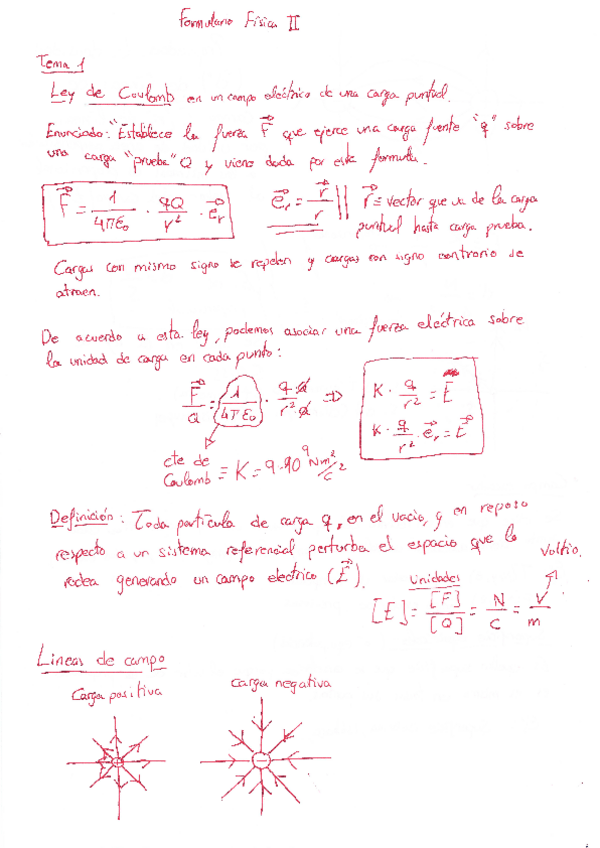 Formulario Física II
Tema 1
Ley de Coulomb en un campo eléctrico de una carga puntual.
Enunciado: "Establece la fuerza F⃗ que ejerce una carga fuente "q" sobre
una carga "prueba" Q y viene dada por esta formula.
F⃗ = 1/4πε₀ · qQ/r² · e⃗r   e⃗r = r⃗/r || r⃗ ≡ vector que va de la carga
puntual hasta carga prueba.
Cargas con mismo signo se repelen y cargas con signo contrario se
atraen.
De acuerdo a esta ley, podemos asociar una fuerza eléctrica sobre
la unidad de carga en cada punto:
F⃗/Q = 1/4πε₀ · q·Q/r²·Q ⇒ K · q/r² = E
K · q/r² · e⃗r = E⃗
cte de
Coulomb ≡ K = 9·10⁹ Nm²/C²
Definición: Toda partícula de carga q, en el vacio, y en reposo
respecto a un sistema referencial perturba el espacio que lo
rodea generando un campo electrico (E⃗).
Voltio.
Unidades
[E] = [F]/[Q] = N/C = V/m
Lineas de campo
Carga positiva
carga negativa
+
−